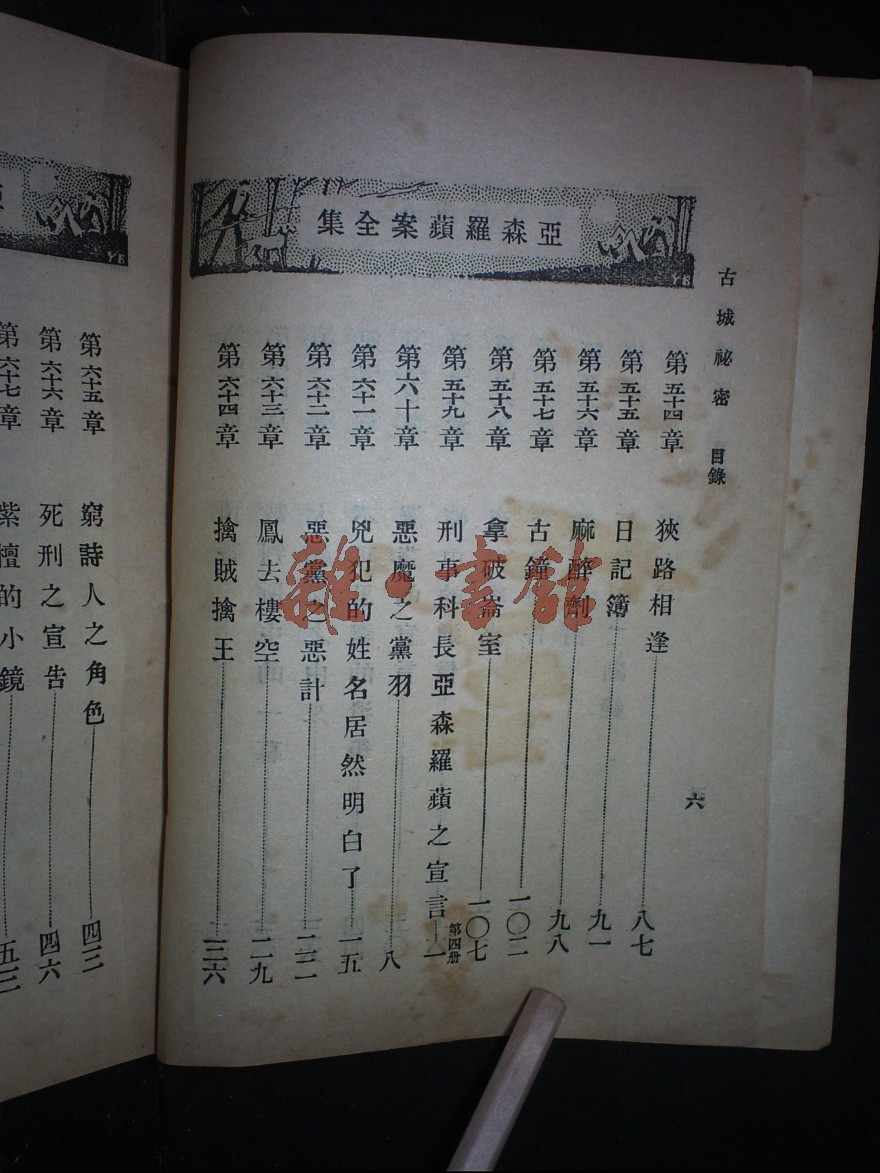 亞森羅蘋案全集
古城祕密 目錄
六
第五十四章 狹路相逢 八七
第五十五章 日記簿 九一
第五十六章 麻醉劑 九八
第五十七章 古鐘 一〇二
第五十八章 拿破崙室 一〇七
第五十九章 刑事科長亞森羅蘋之宣言 第四册 一
第六十章 惡魔之黨羽 八
第六十一章 兇犯的姓名居然明白了 一五
第六十二章 惡黨之惡計
第六十三章 鳳去樓空 二九
第六十四章 擒賊擒王 三六
第六十五章 窮詩人之角色
第六十六章 死刑之宣告 四六
第六十七章 紫檀的小鏡
雜·書館
YB
YB